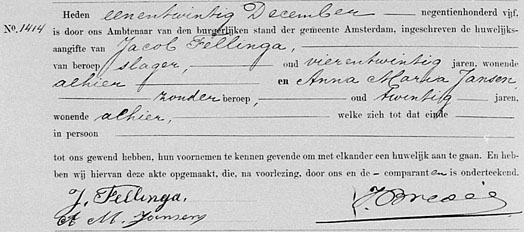 Heden eenentwintig December negentienhonderd vijf.
No. 1414 is door ons Ambtenaar van den burgerlijken stand der gemeente Amsterdam, ingeschreven de huwelijks-
aangifte van Jacob Fellinga,
van beroep slager, oud vierentwintig jaren, wonende
alhier en Anna Maria Jansen,
zonder beroep, oud twintig jaren,
wonende alhier, welke zich tot dat einde
in persoon
tot ons gewend hebben, hun voornemen te kennen gevende om met elkander een huwelijk aan te gaan. En heb-
ben wij hiervan deze akte opgemaakt, die, na voorlezing, door ons en de comparanten is onderteekend.
J. Fellinga.
A M. Jansen